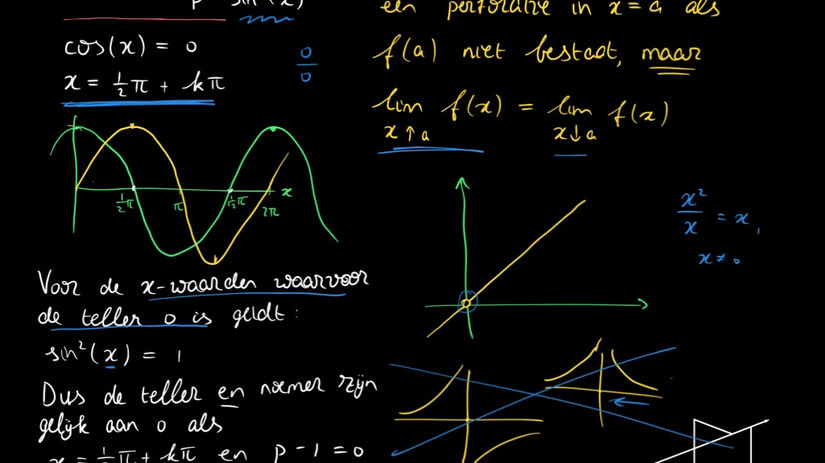 p sin²(x)
cos(x) = 0
0/0
x = ½π + kπ
½π
π
1½π
2π
x
Voor de x-waarden waarvoor
de teller 0 is geldt:
sin²(x) = 1
Dus de teller en noemer zijn
gelijk aan 0 als
x = ½π + kπ en p - 1 = 0
een perforatie in x = a als
f(a) niet bestaat, maar
lim f(x) = lim f(x)
x↑a x↓a
x²/x = x,
x ≠ 0